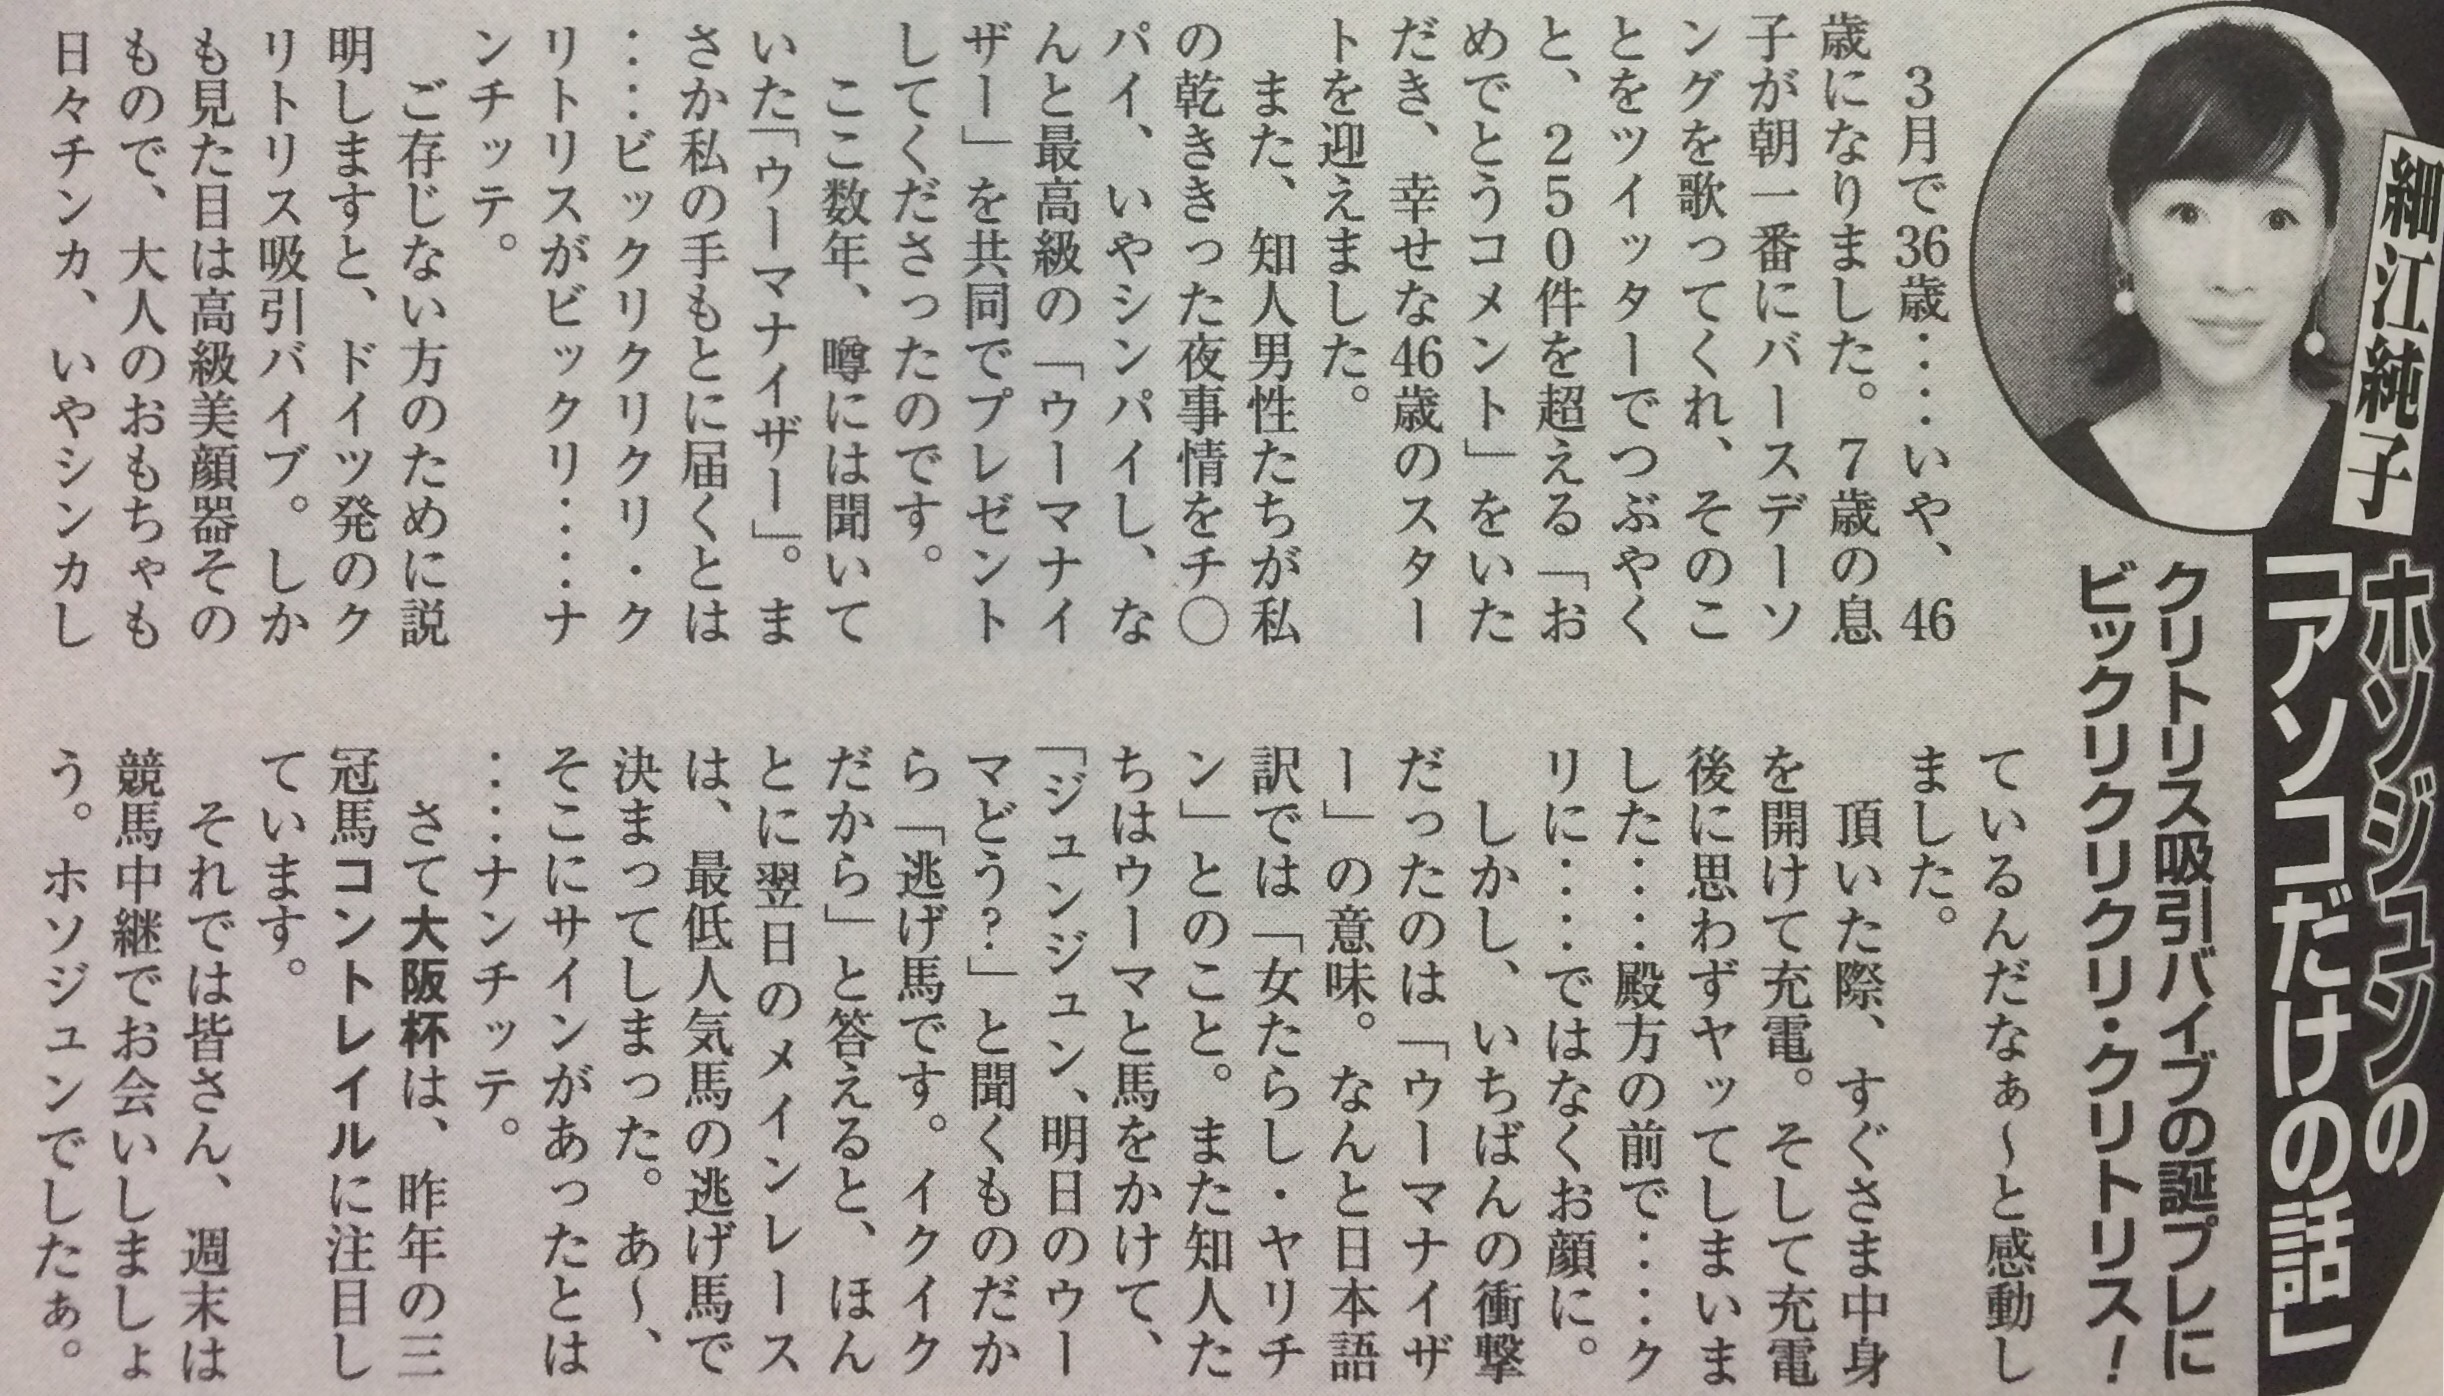 細江純子
ホソジュンの
「アソコだけの話」
クリトリス吸引バイブの誕プレに
ビックリクリクリ・クリトリス！
３月で36歳‥‥いや、46
歳になりました。７歳の息
子が朝一番にバースデーソ
ングを歌ってくれ、そのこ
とをツイッターでつぶやく
と、２５０件を超える「お
めでとうコメント」をいた
だき、幸せな46歳のスター
トを迎えました。
また、知人男性たちが私
の乾ききった夜事情をチ○
パイ、いやシンパイし、な
んと最高級の「ウーマナイ
ザー」を共同でプレゼント
してくださったのです。
ここ数年、噂には聞いて
いた「ウーマナイザー」。ま
さか私の手もとに届くとは
‥‥ビックリクリクリ・ク
リトリスがビックリ‥‥ナ
ンチッテ。
ご存じない方のために説
明しますと、ドイツ発のク
リトリス吸引バイブ。しか
も見た目は高級美顔器その
もので、大人のおもちゃも
日々チンカ、いやシンカし
ているんだなぁ～と感動し
ました。
頂いた際、すぐさま中身
を開けて充電。そして充電
後に思わずヤッてしまいま
した‥‥殿方の前で‥‥ク
リに‥‥ではなくお顔に。
しかし、いちばんの衝撃
だったのは「ウーマナイザ
ー」の意味。なんと日本語
訳では「女たらし・ヤリチ
ン」とのこと。また知人た
ちはウーマと馬をかけて、
「ジュンジュン、明日のウー
マどう？」と聞くものだか
ら「逃げ馬です。イクイク
だから」と答えると、ほん
とに翌日のメインレース
は、最低人気馬の逃げ馬で
決まってしまった。あ～、
そこにサインがあったとは
‥‥ナンチッテ。
さて大阪杯は、昨年の三
冠馬コントレイルに注目し
ています。
それでは皆さん、週末は
競馬中継でお会いしましょ
う。ホソジュンでしたぁ。